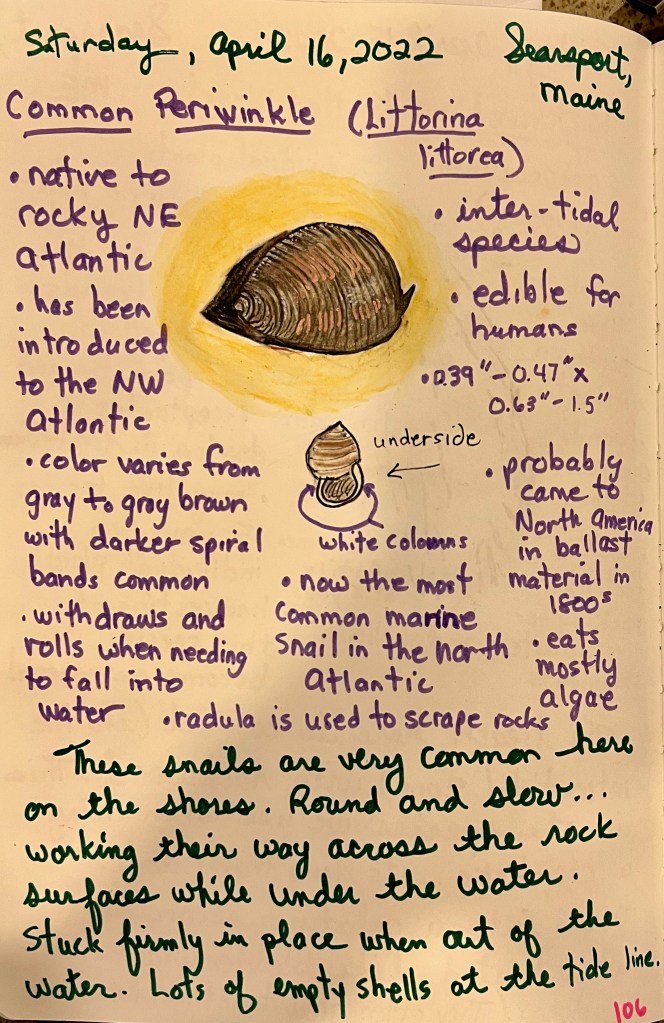 Saturday, April 16, 2022
Searsport,
Maine
Common Periwinkle (Littorina
littorea)
• native to
rocky NE
Atlantic
• has been
introduced
to the NW
Atlantic
• color varies from
gray to gray brown
with darker spiral
bands common
• withdraws and
rolls when needing
to fall into
water
underside
white colomns
• now the most
common marine
snail in the north
Atlantic
• radula is used to scrape rocks
• inter-tidal
species
• edible for
humans
• 0.39" - 0.47" x
0.63" - 1.5"
• probably
came to
North America
in ballast
material in
1800s
• eats
mostly
algae
These snails are very common here
on the shores. Round and slow...
working their way across the rock
surfaces while under the water.
Stuck firmly in place when out of the
water. Lots of empty shells at the tide line.
106